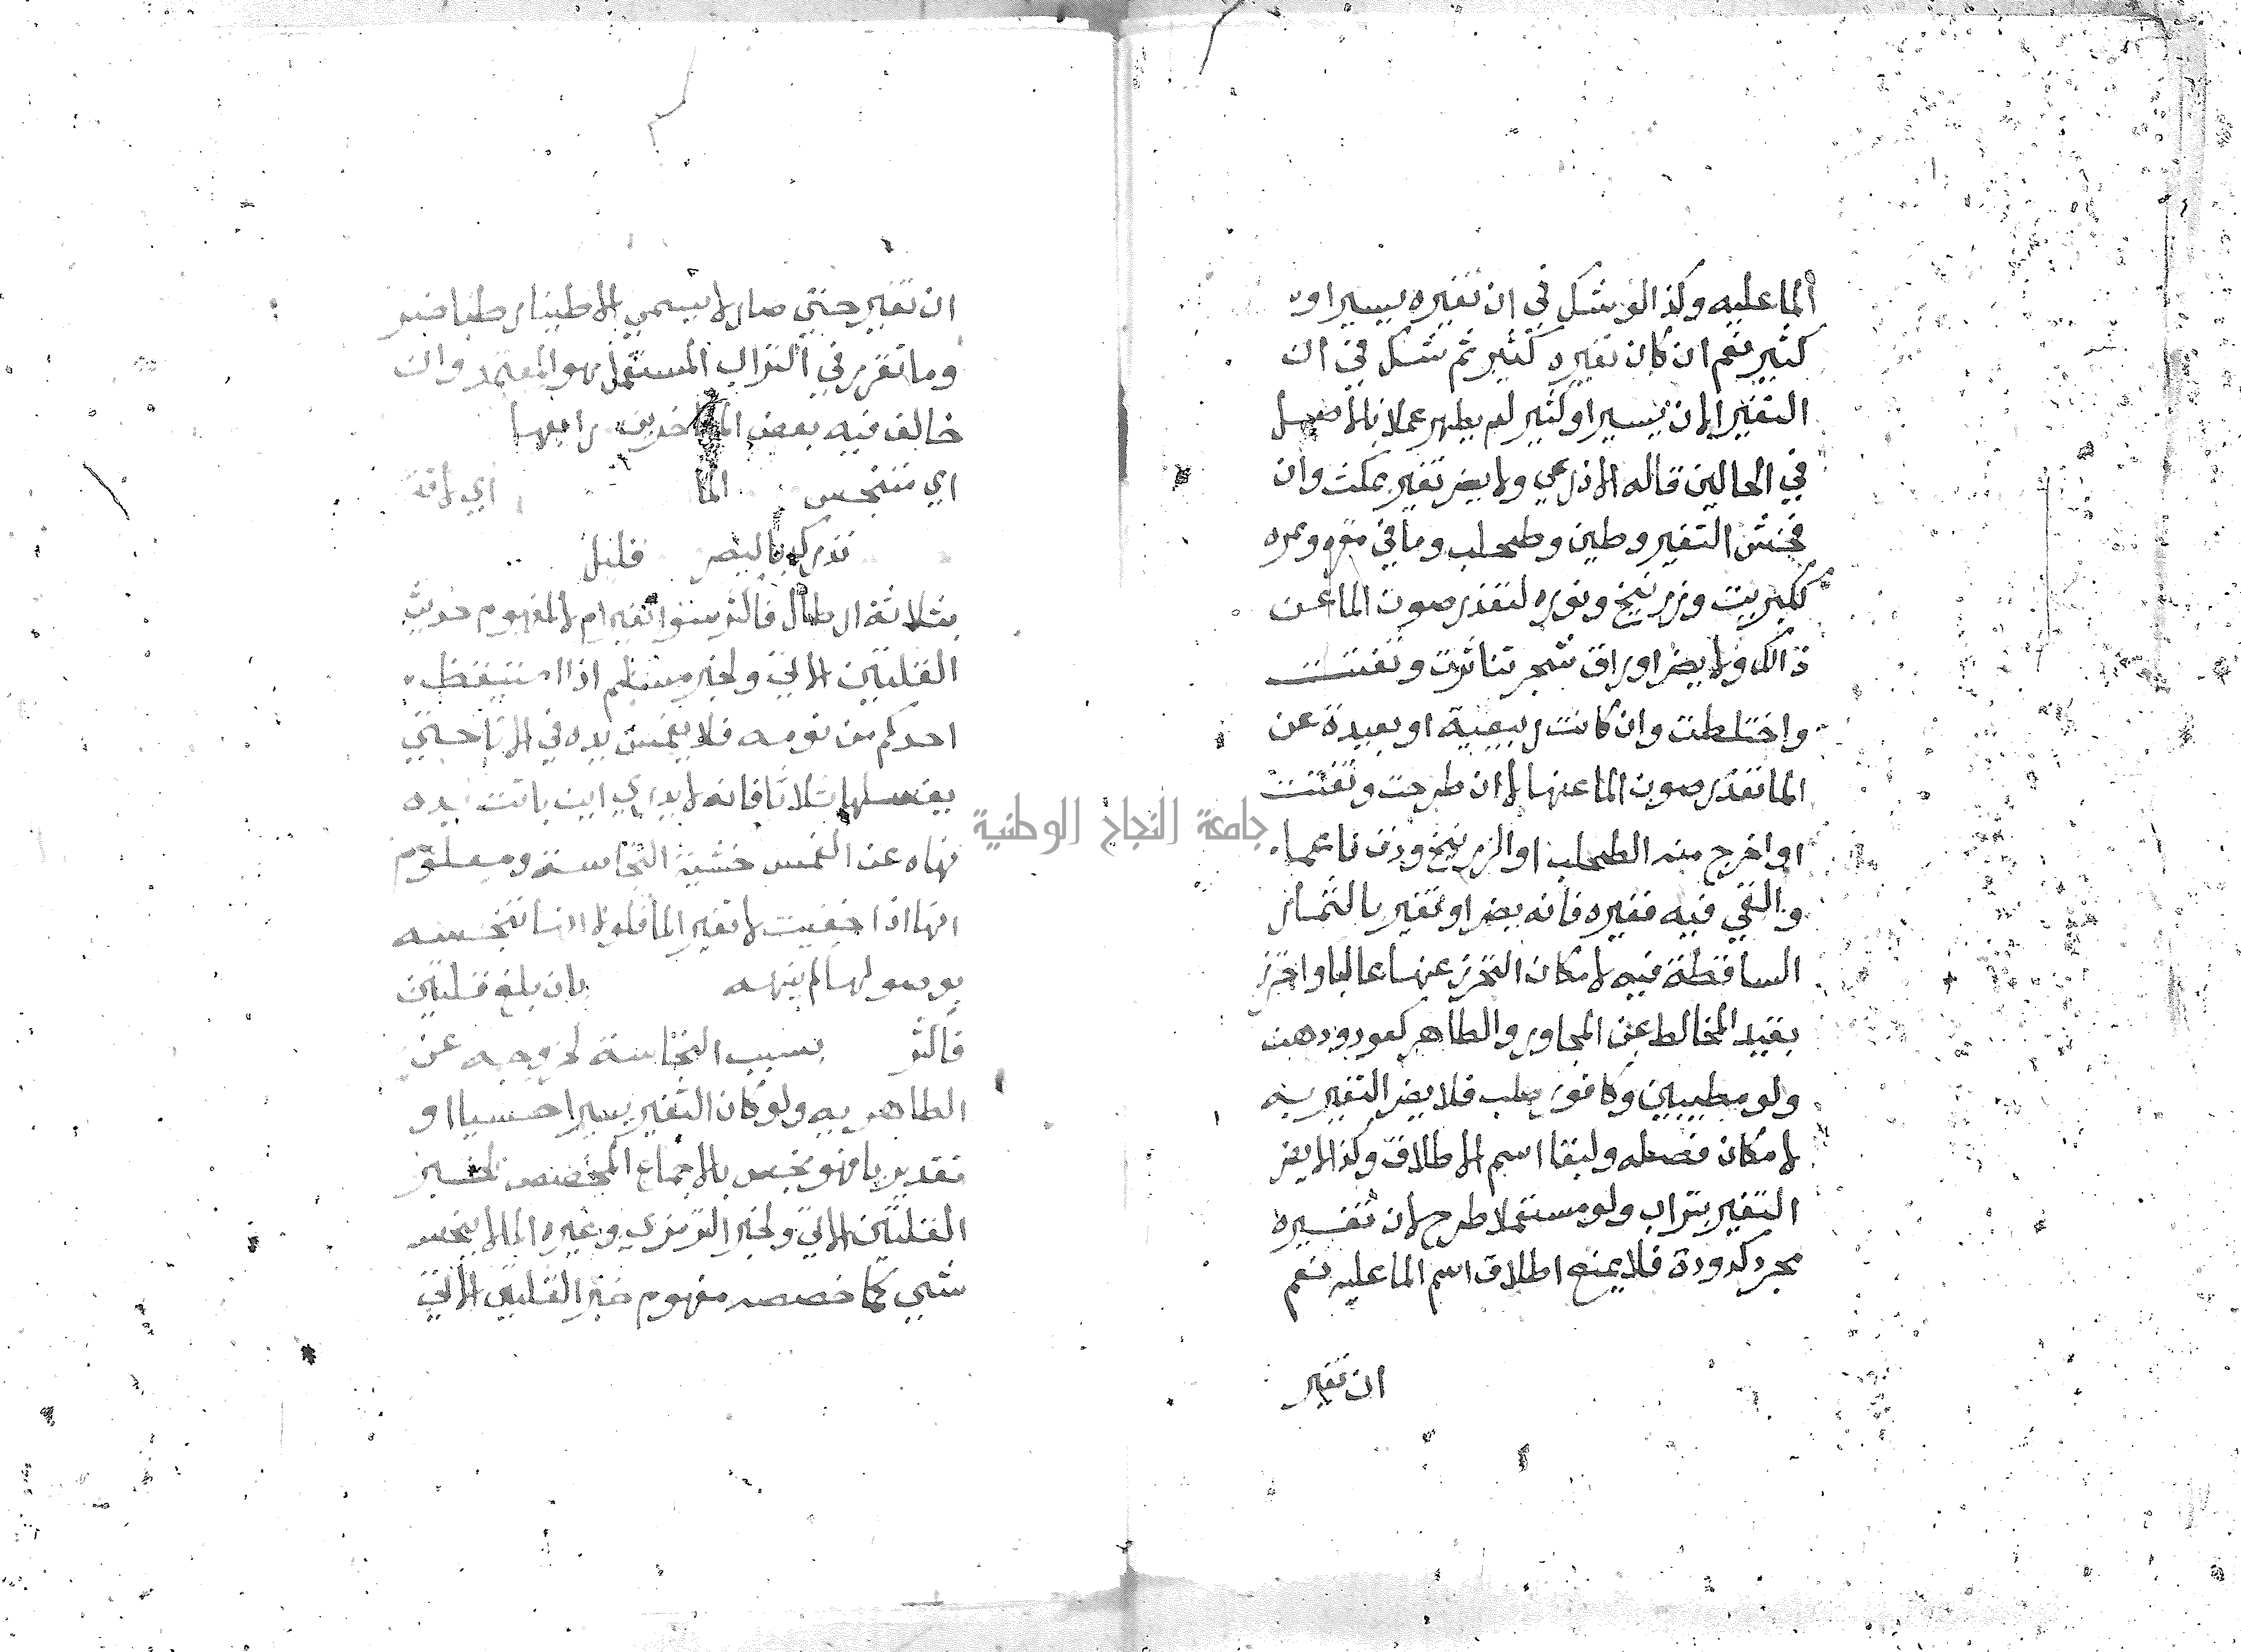 الما عليه وكذا لو شك في ان تغيره يسير او
كثير نعم ان كان تغيره كثير ثم شك في ان
التغير الان يسير او كثير لم يطهر عملا بالاصل
في الحالين قاله الاذرعي ولا يضر تغير بمكث وان
فحش التغير وطين وطحلب وما في مقره وممره
ككبريت وزرنيخ ونوره لتعذر صون الما عن
ذالك ولا يضر اوراق شجر تناثرت وتفتتت
واختلطت وان كانت ربيعية او بعيدة عن
الما لتعذر صون الما عنها لا ان طرحت وتفتتت
او اخرج منه الطحلب او الزرنيخ ودق ناعما
والقي فيه فغيره فانه يضر او تغير بالثمار
الساقطة فيه لامكان التحرز عنها غالبا واحترز
بقيد المخالط عن المجاور والطاهر كعود ودهن
ولو مطيبين وكافور صلب فلا يضر التغير به
لامكان فصله ولبقا اسم الاطلاق وكذا لا يضر
التغير بتراب ولو مستعملا طرح لان تغيره
مجرد كدورة فلا يمنع اطلاق اسم الما عليه نعم
ان تغير
ان تغير حتى صار لا يسمي الا طينا رطبا ضر
وما تقرر في التراب المستعمل هو المعتمد وان
خالف فيه بعض المتاخرين رابعها
اي متنجس الما اي لاقته
تدرك بالبصر قليل
بثلاثة ارطال فاكثر سوا تغير ام لا لمفهوم حديث
القلتين الاتي ولخبر مسلم اذا استيقظ
احدكم من نومه فلا يغمس يده في الانا حتى
يغسلها ثلاثا فانه لا يدري اين باتت يده
نهاه عن الغمس خشية النجاسة ومعلوم
انها اذا خفيت لا تغير الما فلولا انها تنجسه
بوصولها لم ينهه بان بلغ قلتين
فاكثر بسبب النجاسة لخروجه عن
الطاهريه ولو كان التغير يسيرا حسيا او
تقديريا فهو نجس بالاجماع المخصص لخبر
القلتين الاتي ولخبر الترمذي وغيره الما لا ينجسه
شي كما خصصه مفهوم خبر القلتين الاتي
جامعة النجاح الوطنية